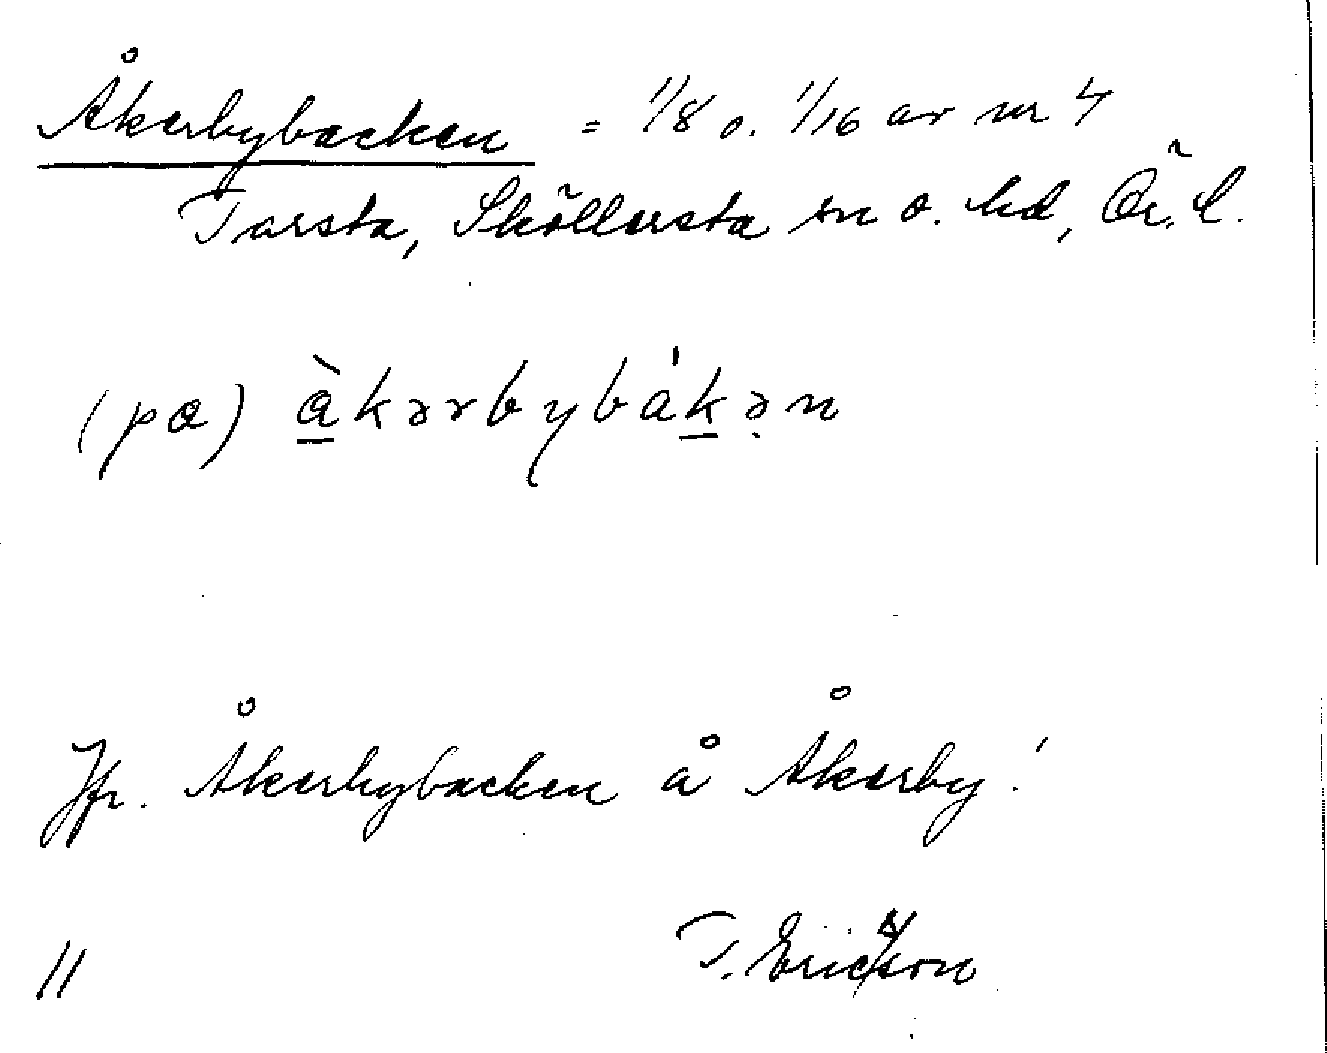 Åkerbybacken = 1/8 o. 1/16 av nr 4
Tarsta, Sköllersta sn o. hd, Ör. l.
(pa) àkərbybákən
Jfr. Åkerbybacken å Åkerby!
11 T. Ericsson